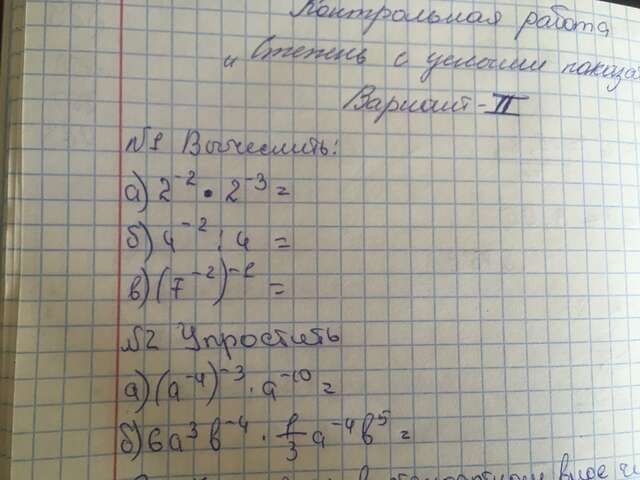 Контрольная работа
"Степень с целыми показа
Вариант-II
№1 Вычеслить:
а) 2⁻² • 2⁻³ =
б) 4⁻² : 4 =
в) (7⁻²)⁻¹ =
№2 Упростить
а) (a⁻⁴)⁻³ · a⁻¹⁰ =
б) 6a³b⁻⁴ · 1/3 a⁻⁴b⁵ =
в стандартном виде ч